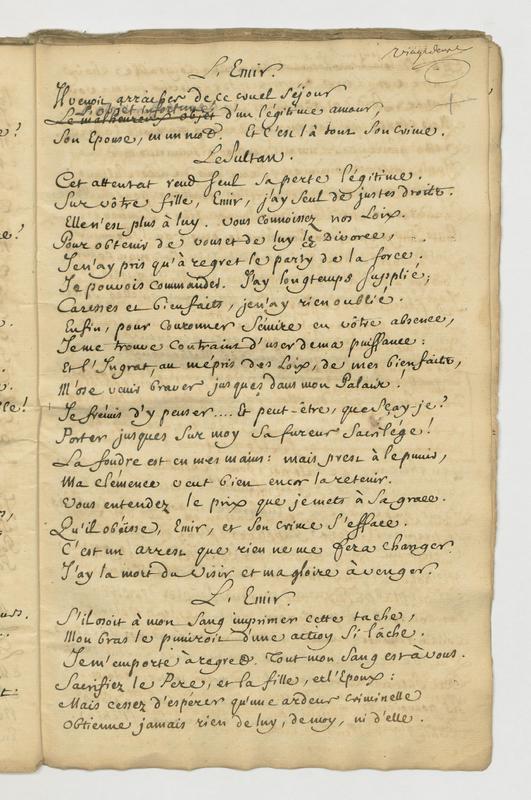 L'Emir.
Il venoit arracher de ce cruel séjour
L'objet infortuné
Le malheureux objet d'un légitime amour,
Son Epouse, en un mot. Et c'est là tout son crime.
Le Sultan.
Cet attentat rend seul sa perte légitime.
Sur vôtre fille, Emir, j'ay seul de justes droits.
Elle n'est plus à luy. vous connoissez nos Loix.
Pour obtenir de vous et de luy ce Divorce,
Je n'ay pris qu'à regret le party de la force.
Je pouvois commander. J'ay longtemps supplié;
Caresses et bienfaits, je n'ay rien oublié.
Enfin, pour couronner Sémire en vôtre absence,
Je me trouve contraint d'user de ma puissance:
Et l'Ingrat, au mépris des Loix, de mes bienfaits,
M'ose venir braver jusques dans mon Palais!
Je frémis d'y penser.... Et peut-être, que sçay-je?
Porter jusques sur moy sa fureur sacrilége!
La foudre est en mes mains: mais prest à le punir,
Ma clémence veut bien encor la retenir.
Vous entendez le prix que je mets à sa grace.
Qu'il obéisse, Emir, et son crime s'efface.
C'est un arrest que rien ne me fera changer.
J'ay la mort du Visir et ma gloire à venger.
L'Emir.
S'il osoit à mon sang imprimer cette tache,
Mon bras le puniroit d'une action si lâche.
Je m'emporte à regret. Tout mon sang est à vous.
Sacrifiez le Pere, et la fille, et l'Epoux:
Mais cessez d'espérer qu'une ardeur criminelle
Obtienne jamais rien de luy, de moy, ni d'elle.